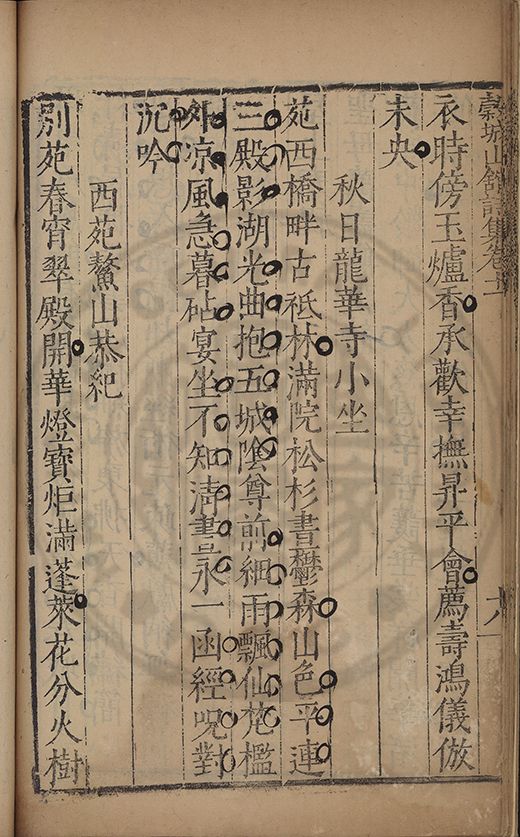 穀城山館詩集卷
衣時傍玉爐香承歡幸撫昇平會薦壽鴻儀倣
未央
秋日龍華寺小坐
苑西橋畔古祇林滿院松杉晝鬱森山色平連
三殿影湖光曲抱五城陰尊前細雨飄仙梵檻
外凉風急暮砧宴坐不知清晝永一函經呪對
沉吟
西苑鰲山恭紀
別苑春宵翠殿開華燈寶炬滿蓬萊花分火樹